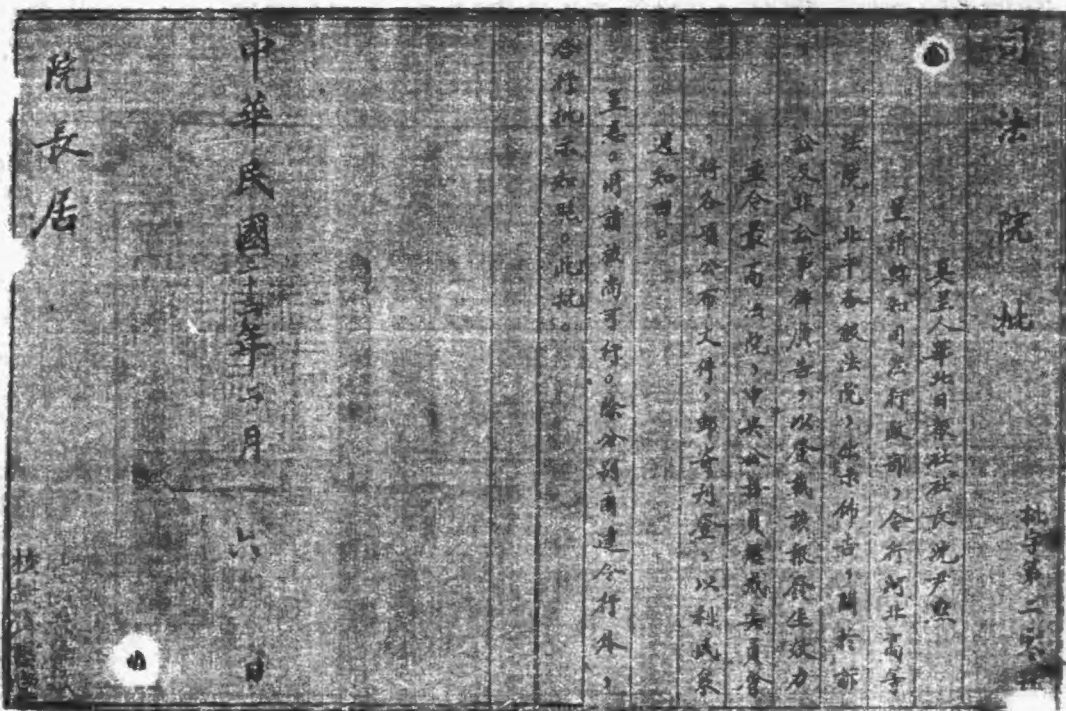 司法院批
批字第二
具呈人華北日報社社長沈尹默
呈請轉知司法行政部，令行河北高等
法院，北平各級法院，出示佈告，關於訴
訟及非訟事件廣告，以登載該報發生效力
並令最高法院，中央公務員懲戒委員會
，將各項公布文件，郵寄刊登，以利民衆
週知由。
呈悉。所請核尚可行。除分別函達令行外，
合行批示知照。此批。
中華民國二十一年二月六日
院長居